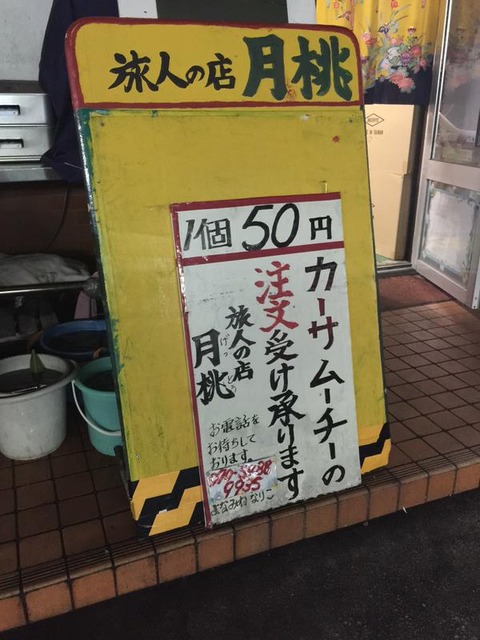 旅人の店 月桃
1個 50円
カーサムーチーの
注文受け承ります
旅人の店
月桃
げっとう
お電話を
お待ちして
おります。
9955
まなみね なりこ